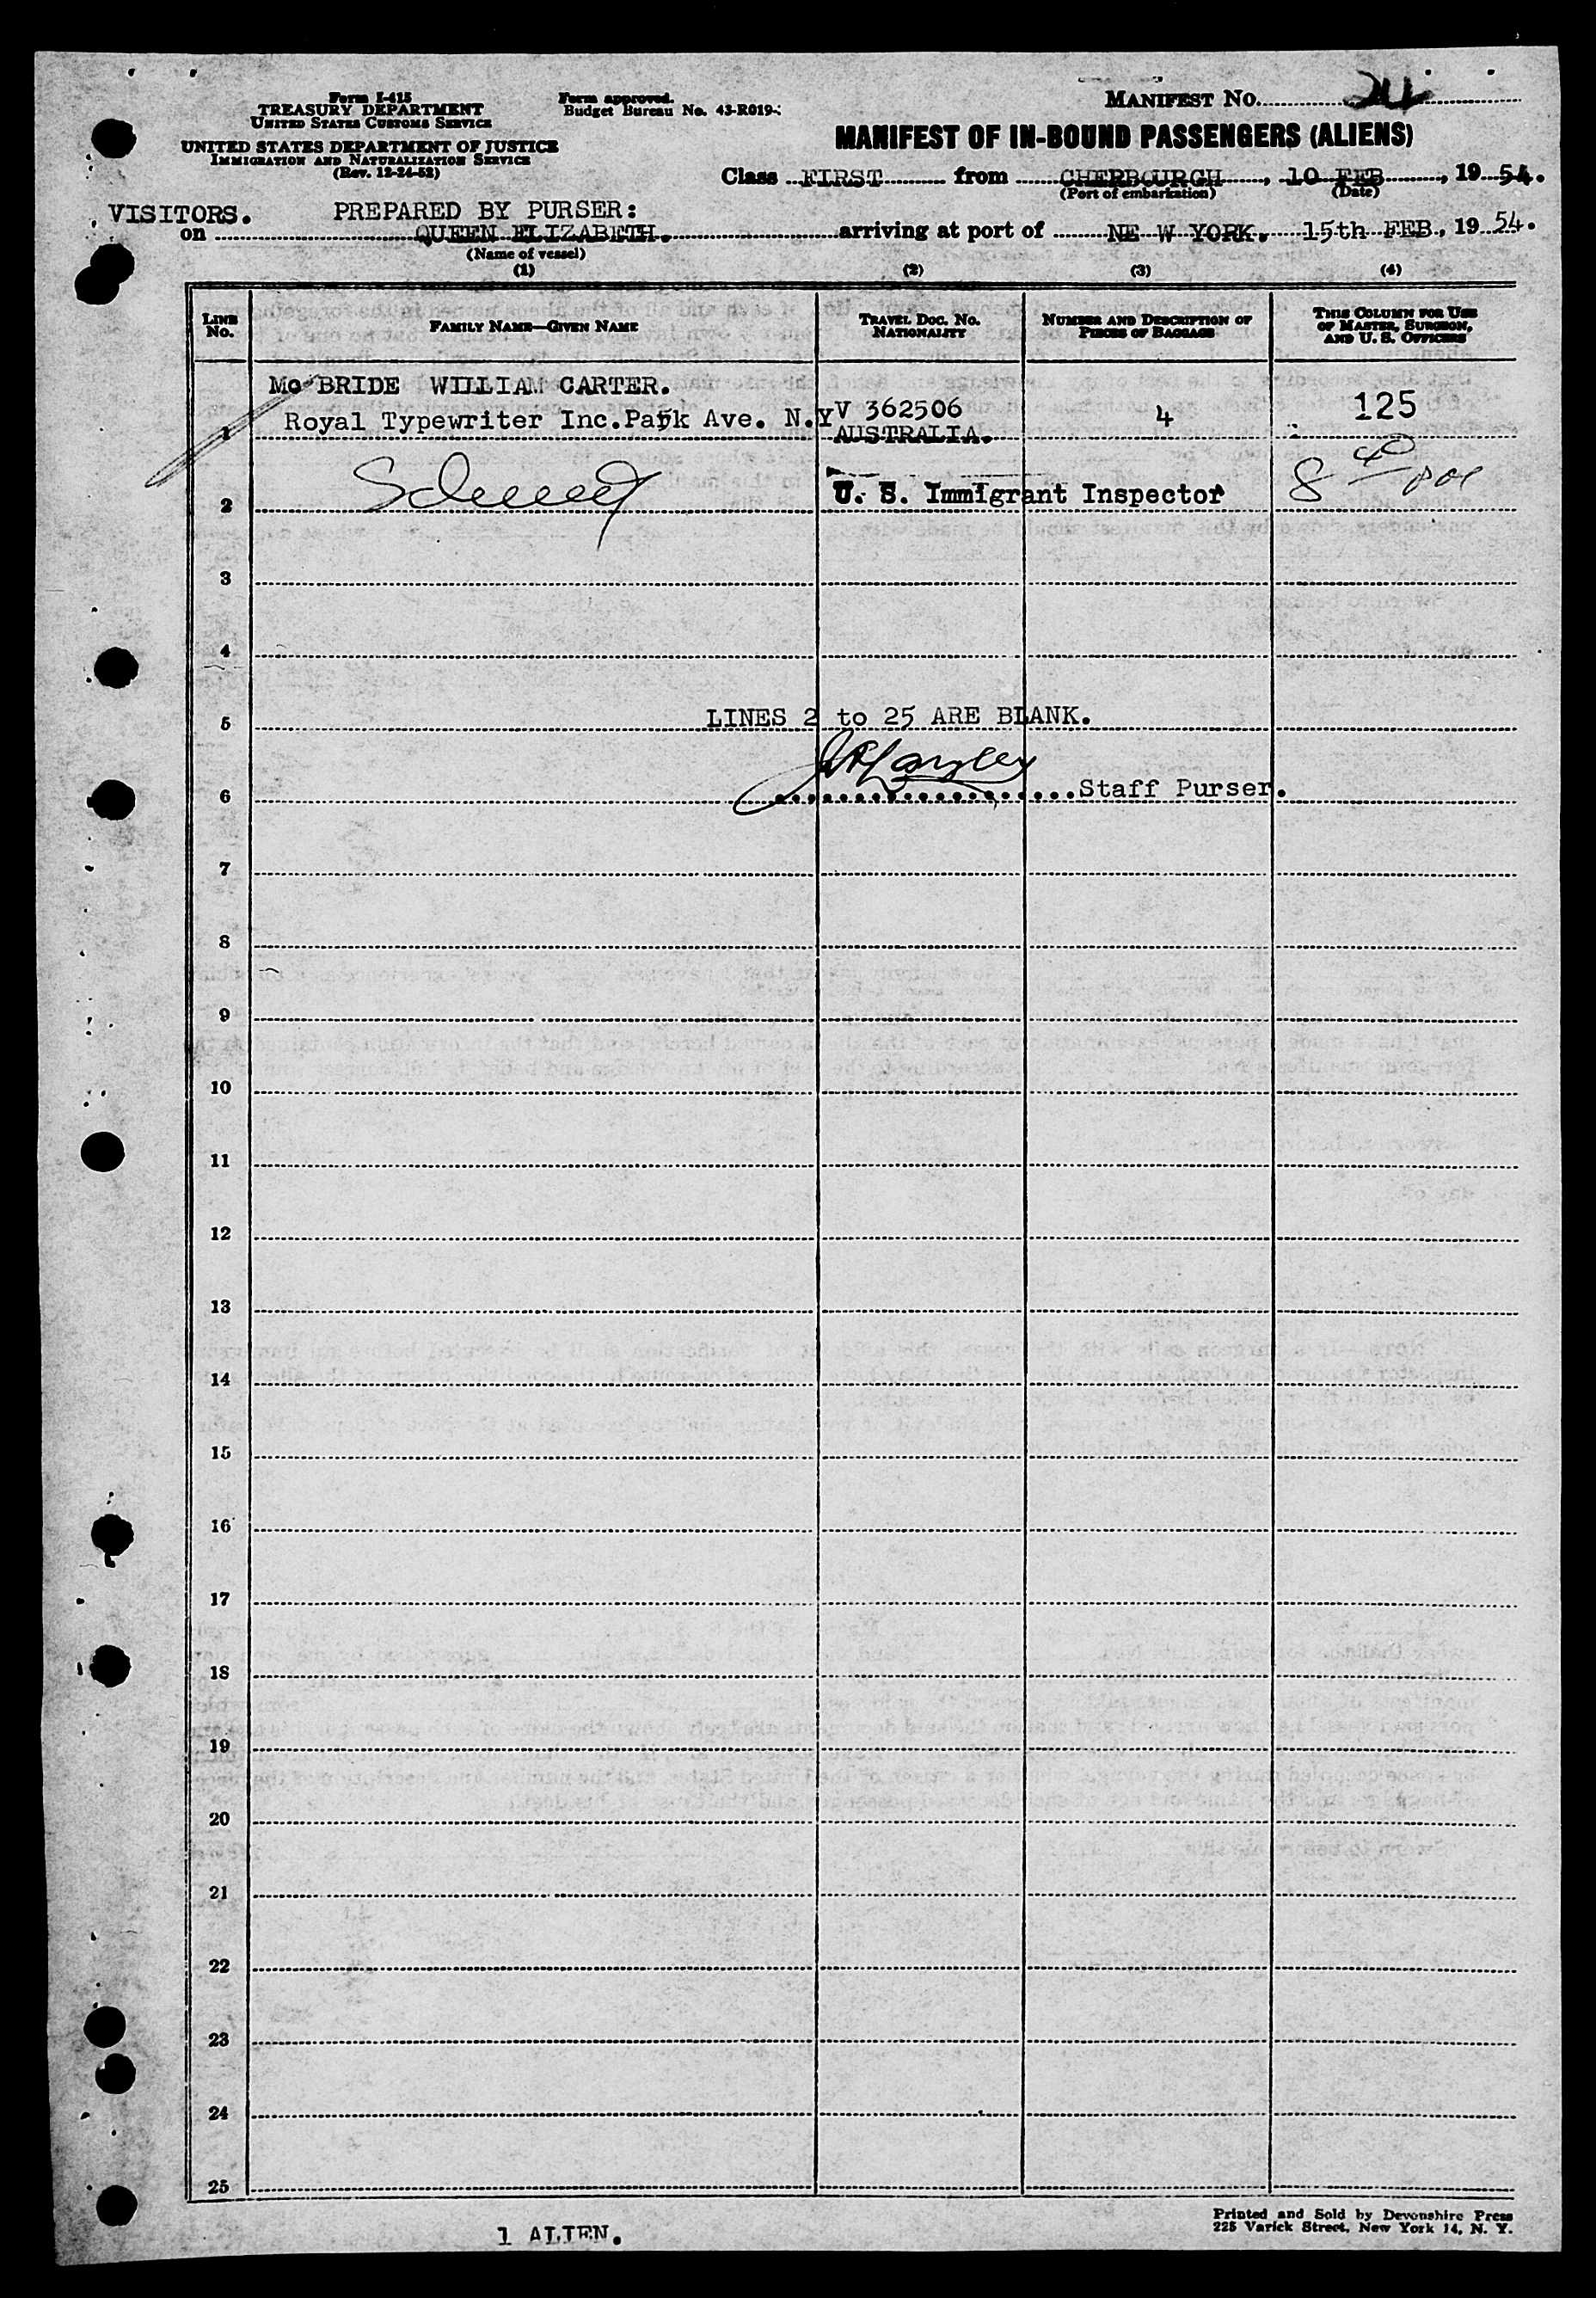 Form I-415
TREASURY DEPARTMENT
UNITED STATES CUSTOMS SERVICE
UNITED STATES DEPARTMENT OF JUSTICE
IMMIGRATION AND NATURALIZATION SERVICE
(Rev. 12-24-52)
Form approved.
Budget Bureau No. 43-R019-
MANIFEST NO. 24
MANIFEST OF IN-BOUND PASSENGERS (ALIENS)
Class FIRST from CHERBOURGH, 10 FEB, 19 54.
(Port of embarkation) (Date)
VISITORS. PREPARED BY PURSER:
on QUEEN ELIZABETH. arriving at port of NE W YORK. 15th FEB., 19 54.
(Name of vessel)
(1) (2) (3) (4)
LINE NO. FAMILY NAME—GIVEN NAME TRAVEL DOC. NO. NATIONALITY NUMBER AND DESCRIPTION OF PIECES OF BAGGAGE THIS COLUMN FOR USE OF MASTER, SURGEON, AND U. S. OFFICERS
Mc BRIDE WILLIAM CARTER.
Royal Typewriter Inc. Park Ave. N.Y V 362506 4 125
1 AUSTRALIA.
2 U. S. Immigrant Inspector 8 40
3
4
5 LINES 2 to 25 ARE BLANK.
6 Staff Purser.
7
8
9
10
11
12
13
14
15
16
17
18
19
20
21
22
23
24
25
1 ALIEN.
Printed and Sold by Devonshire Press
225 Varick Street, New York 14, N. Y.